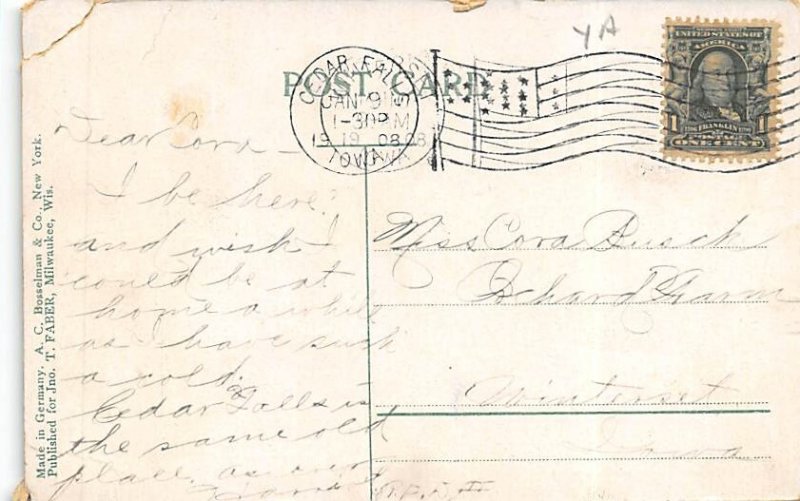 POST CARD
CEDAR FALLS
JAN 9
1-30 PM
1908
IOWA
YA
UNITED STATES OF
AMERICA
1 FRANKLIN 1
ONE CENT
Made in Germany, A. C. Bosselman & Co., New York.
Published for Jno. T. FABER, Milwaukee, Wis.
Dear Cora —
I be here
and wish I
could be at
home a while
as have such
a cold.
Cedar Falls is
the same old
place as ever
Miss Cora Busch
Orchard Farm
Winterset
Iowa